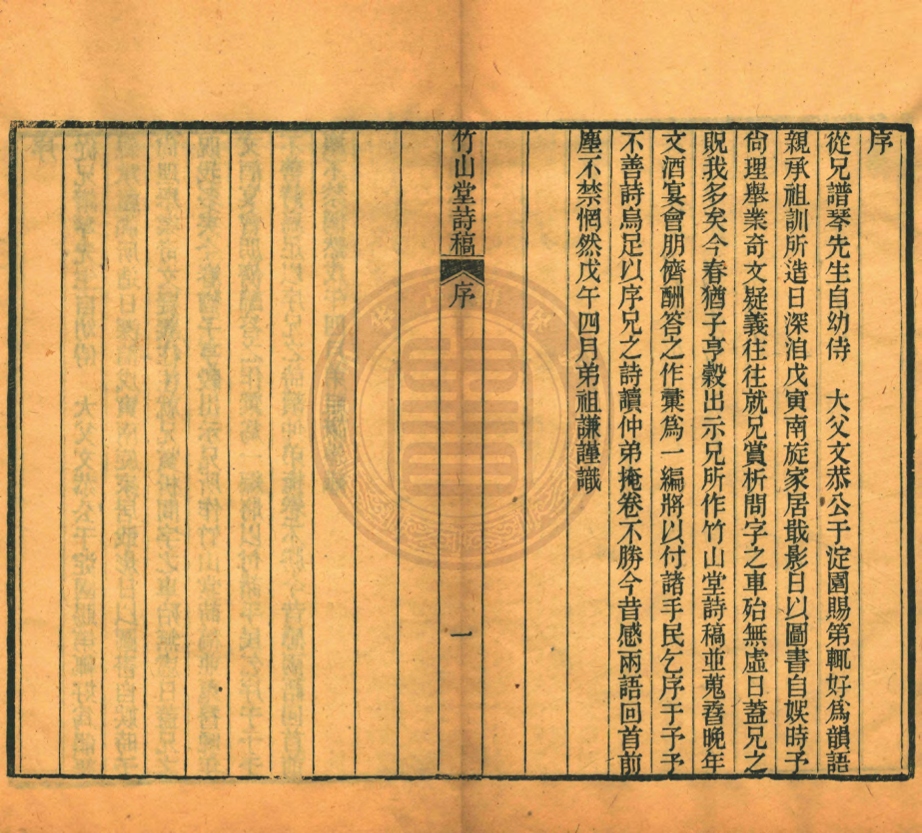 序
從兄譜琴先生自幼侍　大父文恭公于淀園賜第輒好爲韻語
親承祖訓所造日深洎戊寅南旋家居戢影日以圖書自娛時予
尙理舉業奇文疑義往往就兄賞析問字之車殆無虛日蓋兄之
貺我多矣今春猶子亨穀出示兄所作竹山堂詩稿並蒐舂晚年
文酒宴會朋儕酬答之作彙爲一編將以付諸手民乞序于予予
不善詩烏足以序兄之詩讀仲弟掩卷不勝今昔感兩語回首前
塵不禁惘然戊午四月弟祖謙謹識
竹山堂詩稿　序　一